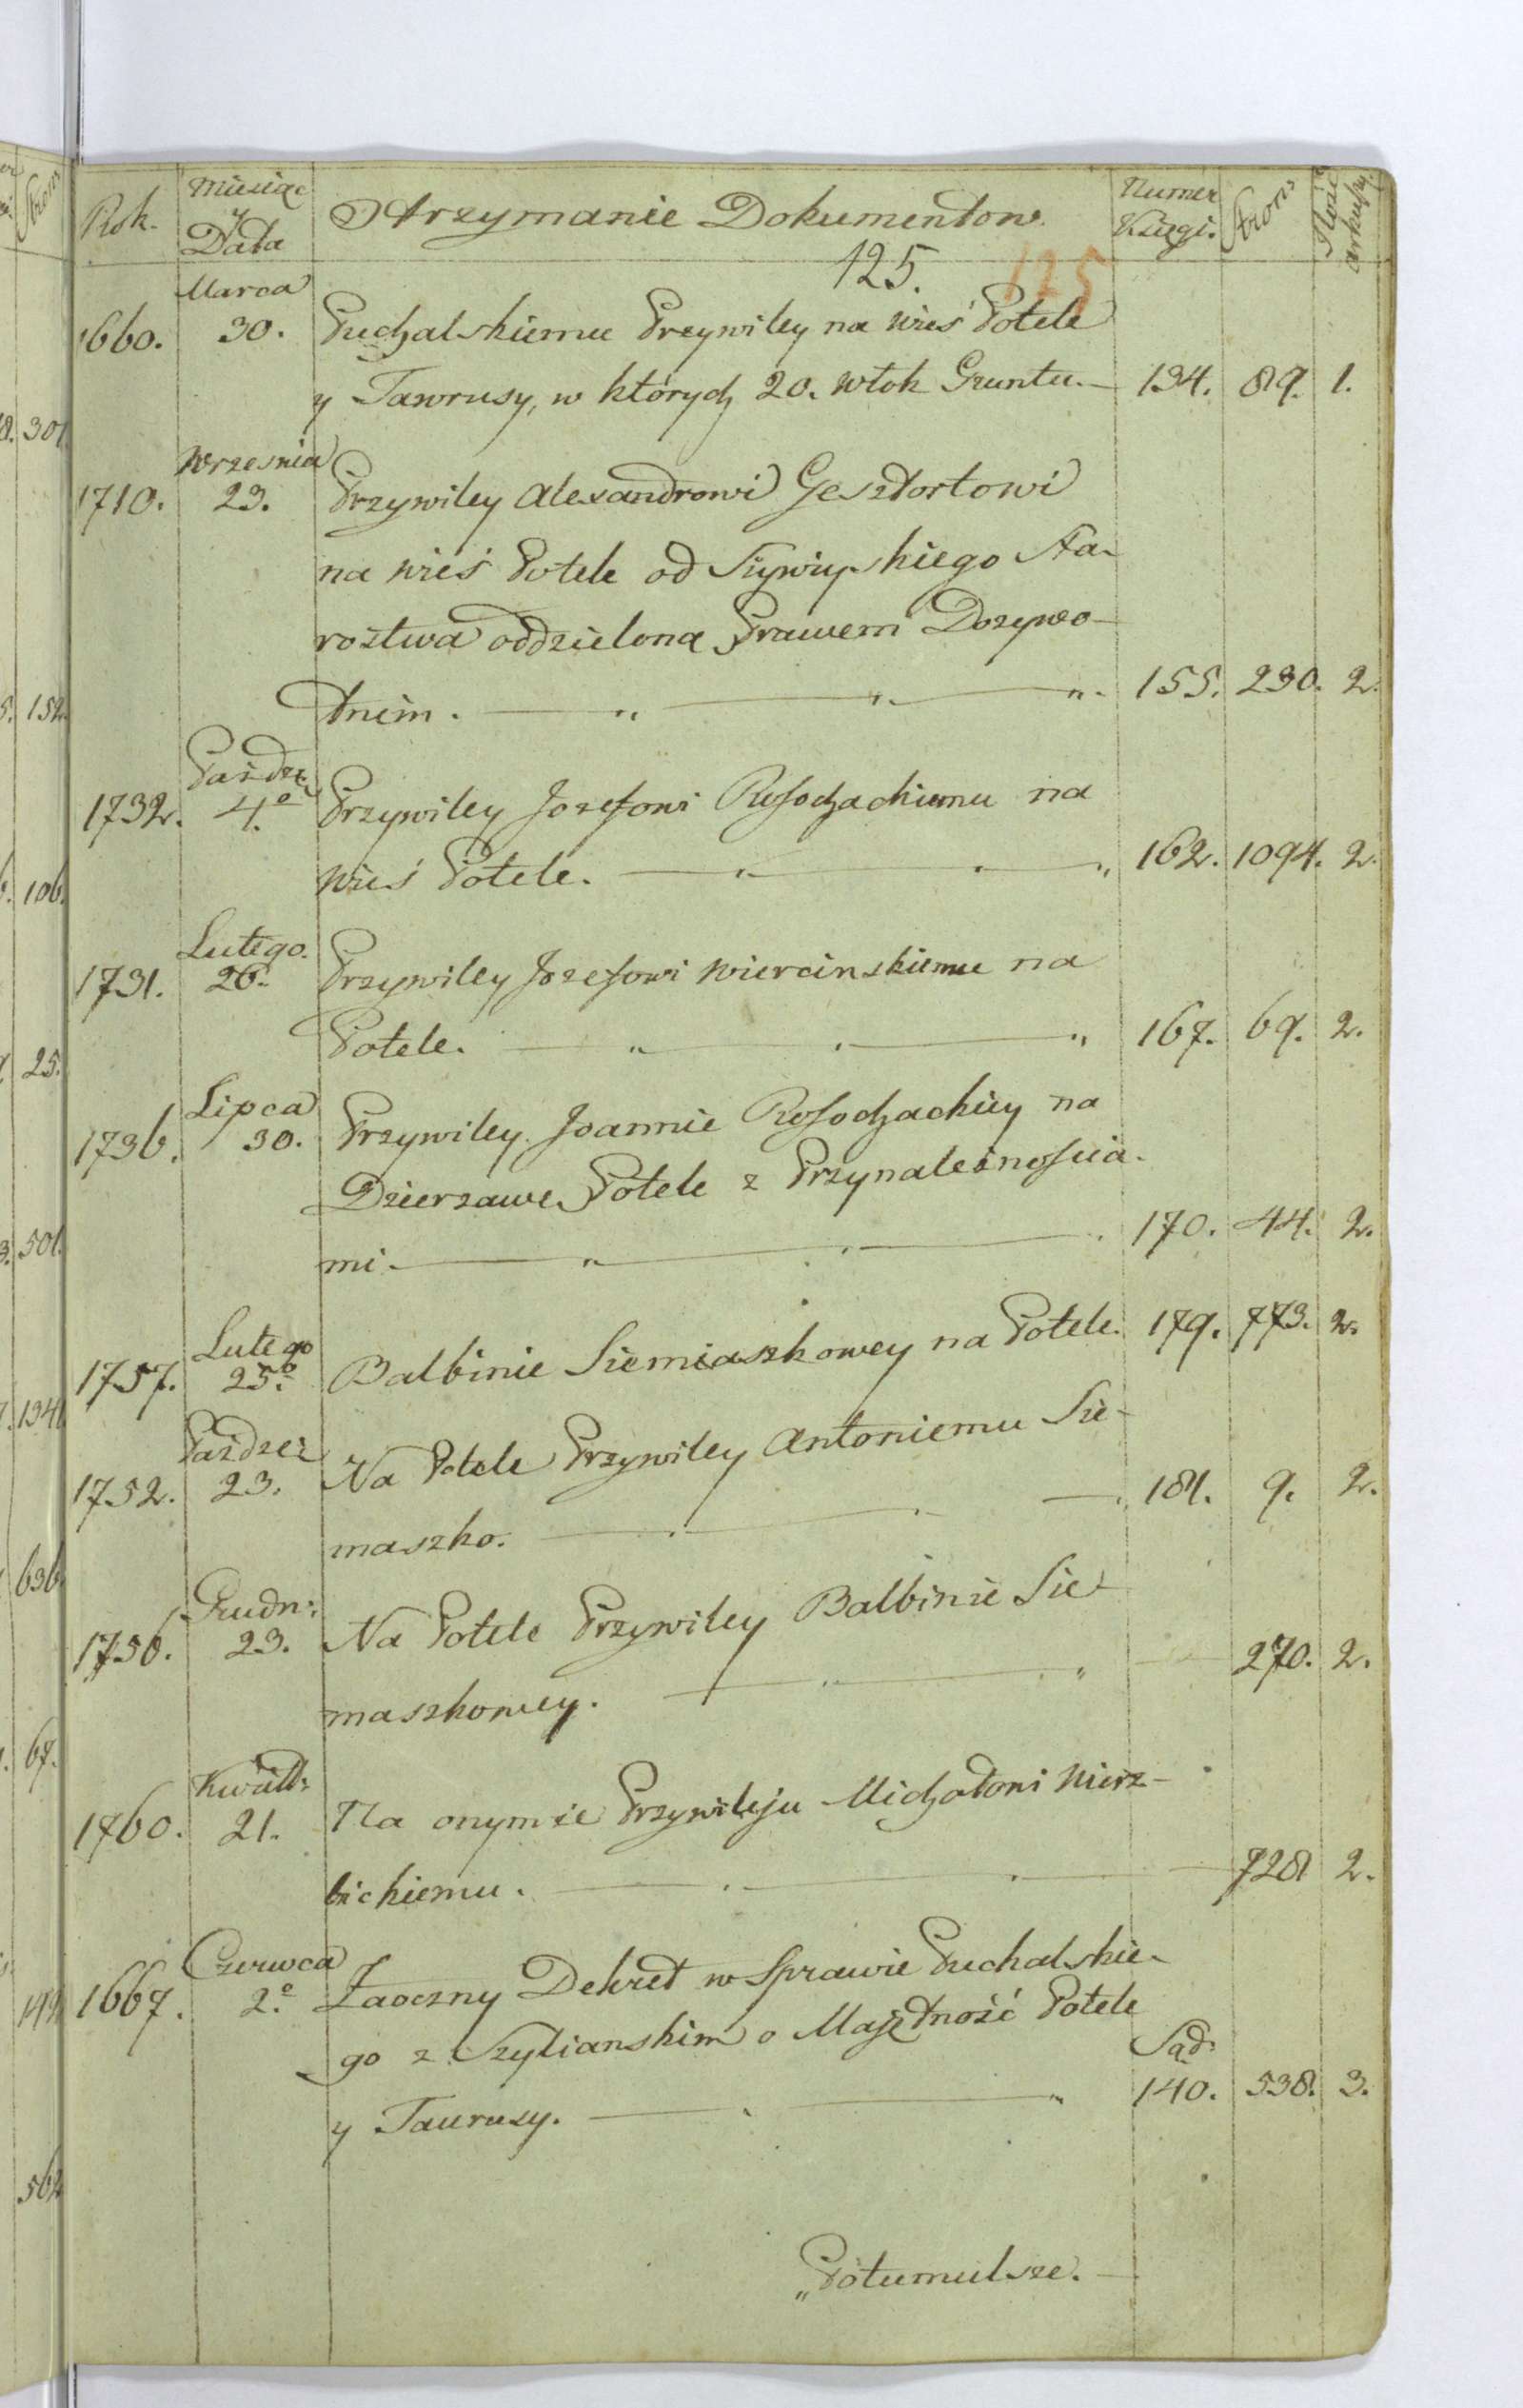 Rok. Miesiąc y Data Otrzymanie Dokumentow. Numer Księgi. Stron Ilość arkuszy
125. 125
Marca
1660. 30. Puchalskiemu Przywiley na Wieś Potele
y Tawrusy, w których 20. Włok Gruntu. 134. 89. 1.
Wrzesnia
1710. 23. Przywiley Alexandrowi Gesztortowi
na Wieś Potele od Sta-
rostwa oddzieloną Prawem Dozywo-
tnim. 155. 230. 2.
Paźdz:
1732. 4.º Przywiley Jozefowi Rosochackiemu na
Wieś Potele. 162. 1094. 2.
Lutego.
1731. 26. Przywiley Jozefowi Wiercinskiemu na
Potele. 167. 69. 2.
Lipca
1736. 30. Przywiley Joannie Rosochackiey na
Dzierzawe Potele z Przynależnościa-
mi. 170. 44. 2.
Lutego
1757. 25.º Balbinie Siemiaszkowey na Potele. 179. 773. 2.
Paździer
1752. 23. Na Potele Przywiley Antoniemu Sie-
maszko. 181. 9. 2.
Grudn:
1756. 23. Na Potele Przywiley Balbinie Sie-
maszkowey. 270. 2.
Kwiet:
1760. 21. Na onymże Przywileju Michałowi Wierz-
bickiemu. 728 2.
Czerwca
1667. 2.º Zaoczny Dekret w Sprawie Puchalskie-
go z Szylianskim o Majętność Potele
Sąd:
y Taurusy. 140. 538. 3.
„Potumulsze.
30
152.
106.
25.
501.
134
636
67.
562